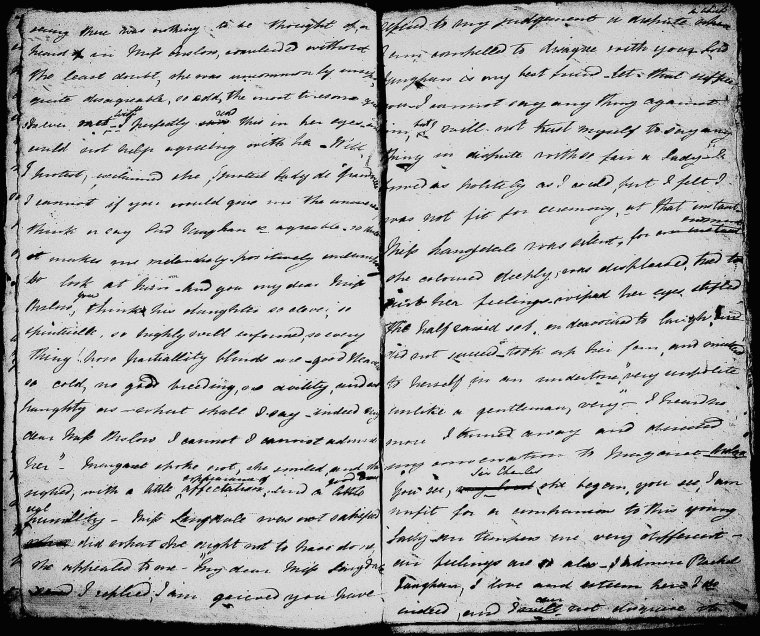 seeing there was nothing to be thought of, a
heard in Miss Onslow, concluded without
the least doubt, she was uncommonly
quite disagreeable, so odd, the most tiresome
I never perfectly read this in her eyes
could not help agreeing with her
I protest, exclaimed she, Lady de
I cannot if you would give me the universe
think or say Lord Vaughan is agreeable
it makes me melancholy, positively
to look at him - And you my dear Miss
Onslow, you think his daughter so clever, so
spirituelle, so highly well informed, so every
thing, how partiality blinds one - good Heavens
so cold, no good breeding, no civility, and so
haughty so - what shall I say - indeed my
dear Miss Onslow I cannot I cannot admire
her" - Margaret spoke not, she smiled, and she
sighed, with a little appearance of affectation, and a little
humility - Miss Langdale was not satisfied
did what she ought not to have done,
she appealed to me - "My dear Miss Langdale
I replied, I am grieved you have
appealed to my judgement a dispute when
I am compelled to disagree with you. Lord
Vaughan is my best friend - let that suffice
you I cannot say any thing against
him, but I will not trust myself to say any
thing in dispute with so fair a Lady - I
bowed as politely as I could but I felt I
was not fit for ceremony at that instant
Miss Langdale was silent, for moment
she coloured deeply, was displeased, tried to
her feelings, wiped her eyes, stifled
the half raised sob, endeavoured to laugh, and
did not succeed - took up her fan, and muttered
to herself in an undertone, "very unpolite
unlike a gentleman, very" - I heard no
more I turned away and
my conversation to Margaret Onslow
You see, Sir Charles she began, you see, I am
unfit for a companion to this young
Lady our tempers are very different -
our feelings are so also - I admire Rachel
Vaughan, I love and esteem her I do
indeed, and I can not disguise it